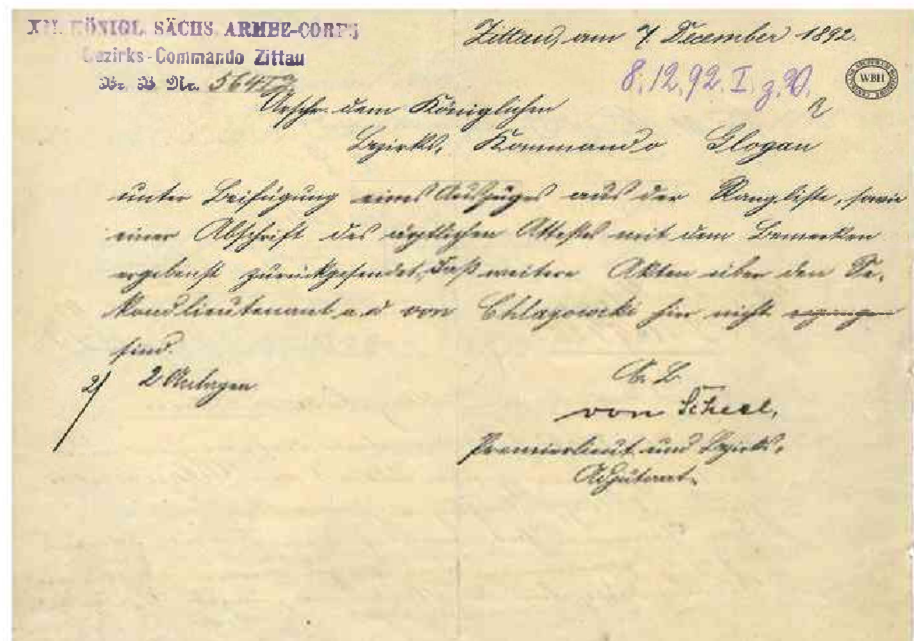 XII. KÖNIGL. SÄCHS. ARMEE-CORPS
Bezirks-Commando Zittau
Zittau, am 7. December 1892.
8.12.92. I.
WBH
Urschr. dem Königlichen
Bezirks-Kommando Glogau
unter Beifügung eines Auszuges aus der Rangliste, sowie
einer Abschrift des ärztlichen Attestes mit dem Bemerken
ergebenst zurückgesendet, daß weitere Akten über den Se-
kondlieutenant a.d von Chlapowski hier nicht
sind.
2/ 2 Anlagen
von Scheel,
Premierlieut. und Bezirks-
Adjutant.